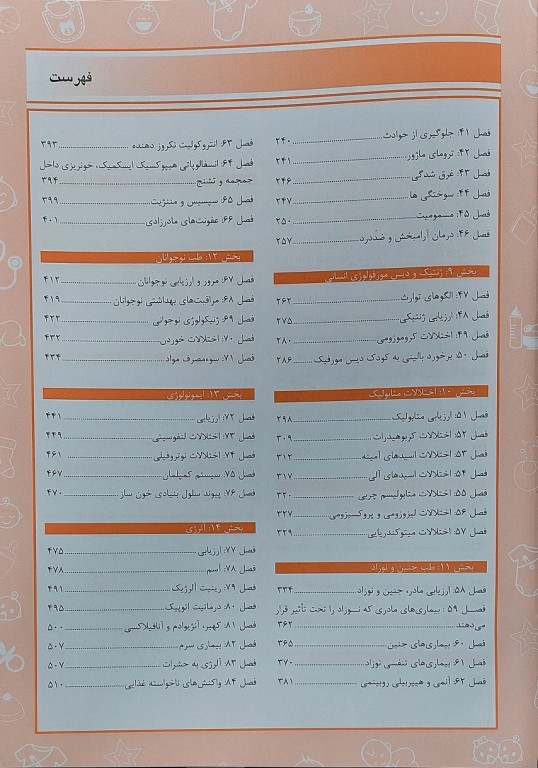 فهرست
فصل ۴۱: جلوگیری از حوادث ........ ۲۴۰
فصل ۴۲: ترومای ماژور ........ ۲۴۱
فصل ۴۳: غرق شدگی ........ ۲۴۶
فصل ۴۴: سوختگی ها ........ ۲۴۷
فصل ۴۵: مسمومیت ........ ۲۵۰
فصل ۴۶: درمان آرامبخش و ضددرد ........ ۲۵۷
بخش ۹: ژنتیک و دیس مورفولوژی انسانی
فصل ۴۷: الگوهای توارث ........ ۲۶۲
فصل ۴۸: ارزیابی ژنتیکی ........ ۲۷۵
فصل ۴۹: اختلالات کروموزومی ........ ۲۸۰
فصل ۵۰: برخورد بالینی به کودک دیس مورفیک ........ ۲۸۶
بخش ۱۰: اختلالات متابولیک
فصل ۵۱: ارزیابی متابولیک ........ ۲۹۸
فصل ۵۲: اختلالات کربوهیدرات ........ ۳۰۹
فصل ۵۳: اختلالات اسیدهای آمینه ........ ۳۱۲
فصل ۵۴: اختلالات اسیدهای آلی ........ ۳۱۷
فصل ۵۵: اختلالات متابولیسم چربی ........ ۳۲۰
فصل ۵۶: اختلالات لیزوزومی و پروکسیزومی ........ ۳۲۷
فصل ۵۷: اختلالات میتوکندریایی ........ ۳۲۹
بخش ۱۱: طب جنین و نوزاد
فصل ۵۸: ارزیابی مادر، جنین و نوزاد ........ ۳۳۴
فصل ۵۹ : بیماری‌های مادری که نوزاد را تحت تأثیر قرار
می‌دهند ........ ۳۶۲
فصل ۶۰: بیماری‌های جنین ........ ۳۶۵
فصل ۶۱: بیماری‌های تنفسی نوزاد ........ ۳۷۰
فصل ۶۲: آنمی و هیپربیلی روبینمی ........ ۳۸۱
فصل ۶۳: انتروکولیت نکروز دهنده ........ ۳۹۳
فصل ۶۴: انسفالوپاتی هیپوکسیک ایسکمیک، خونریزی داخل
جمجمه و تشنج ........ ۳۹۴
فصل ۶۵: سپسیس و مننژیت ........ ۳۹۹
فصل ۶۶: عفونت‌های مادرزادی ........ ۴۰۱
بخش ۱۲: طب نوجوانان
فصل ۶۷: مرور و ارزیابی نوجوانان ........ ۴۱۲
فصل ۶۸: مراقبت‌های بهداشتی نوجوانان ........ ۴۱۹
فصل ۶۹: ژنیکولوژی نوجوانی ........ ۴۲۲
فصل ۷۰: اختلالات خوردن ........ ۴۳۲
فصل ۷۱: سوءمصرف مواد ........ ۴۳۴
بخش ۱۳: ایمونولوژی
فصل ۷۲: ارزیابی ........ ۴۴۱
فصل ۷۳: اختلالات لنفوسیتی ........ ۴۴۹
فصل ۷۴: اختلالات نوتروفیلی ........ ۴۶۱
فصل ۷۵: سیستم کمپلمان ........ ۴۶۷
فصل ۷۶: پیوند سلول بنیادی خون ساز ........ ۴۷۰
بخش ۱۴: آلرژی
فصل ۷۷: ارزیابی ........ ۴۷۵
فصل ۷۸: آسم ........ ۴۷۸
فصل ۷۹: رینیت آلرژیک ........ ۴۹۱
فصل ۸۰: درماتیت آتوپیک ........ ۴۹۵
فصل ۸۱: کهیر، آنژیوادم و آنافیلاکسی ........ ۵۰۰
فصل ۸۲: بیماری سرم ........ ۵۰۷
فصل ۸۳: آلرژی به حشرات ........ ۵۰۷
فصل ۸۴: واکنش‌های ناخواسته غذایی ........ ۵۱۰